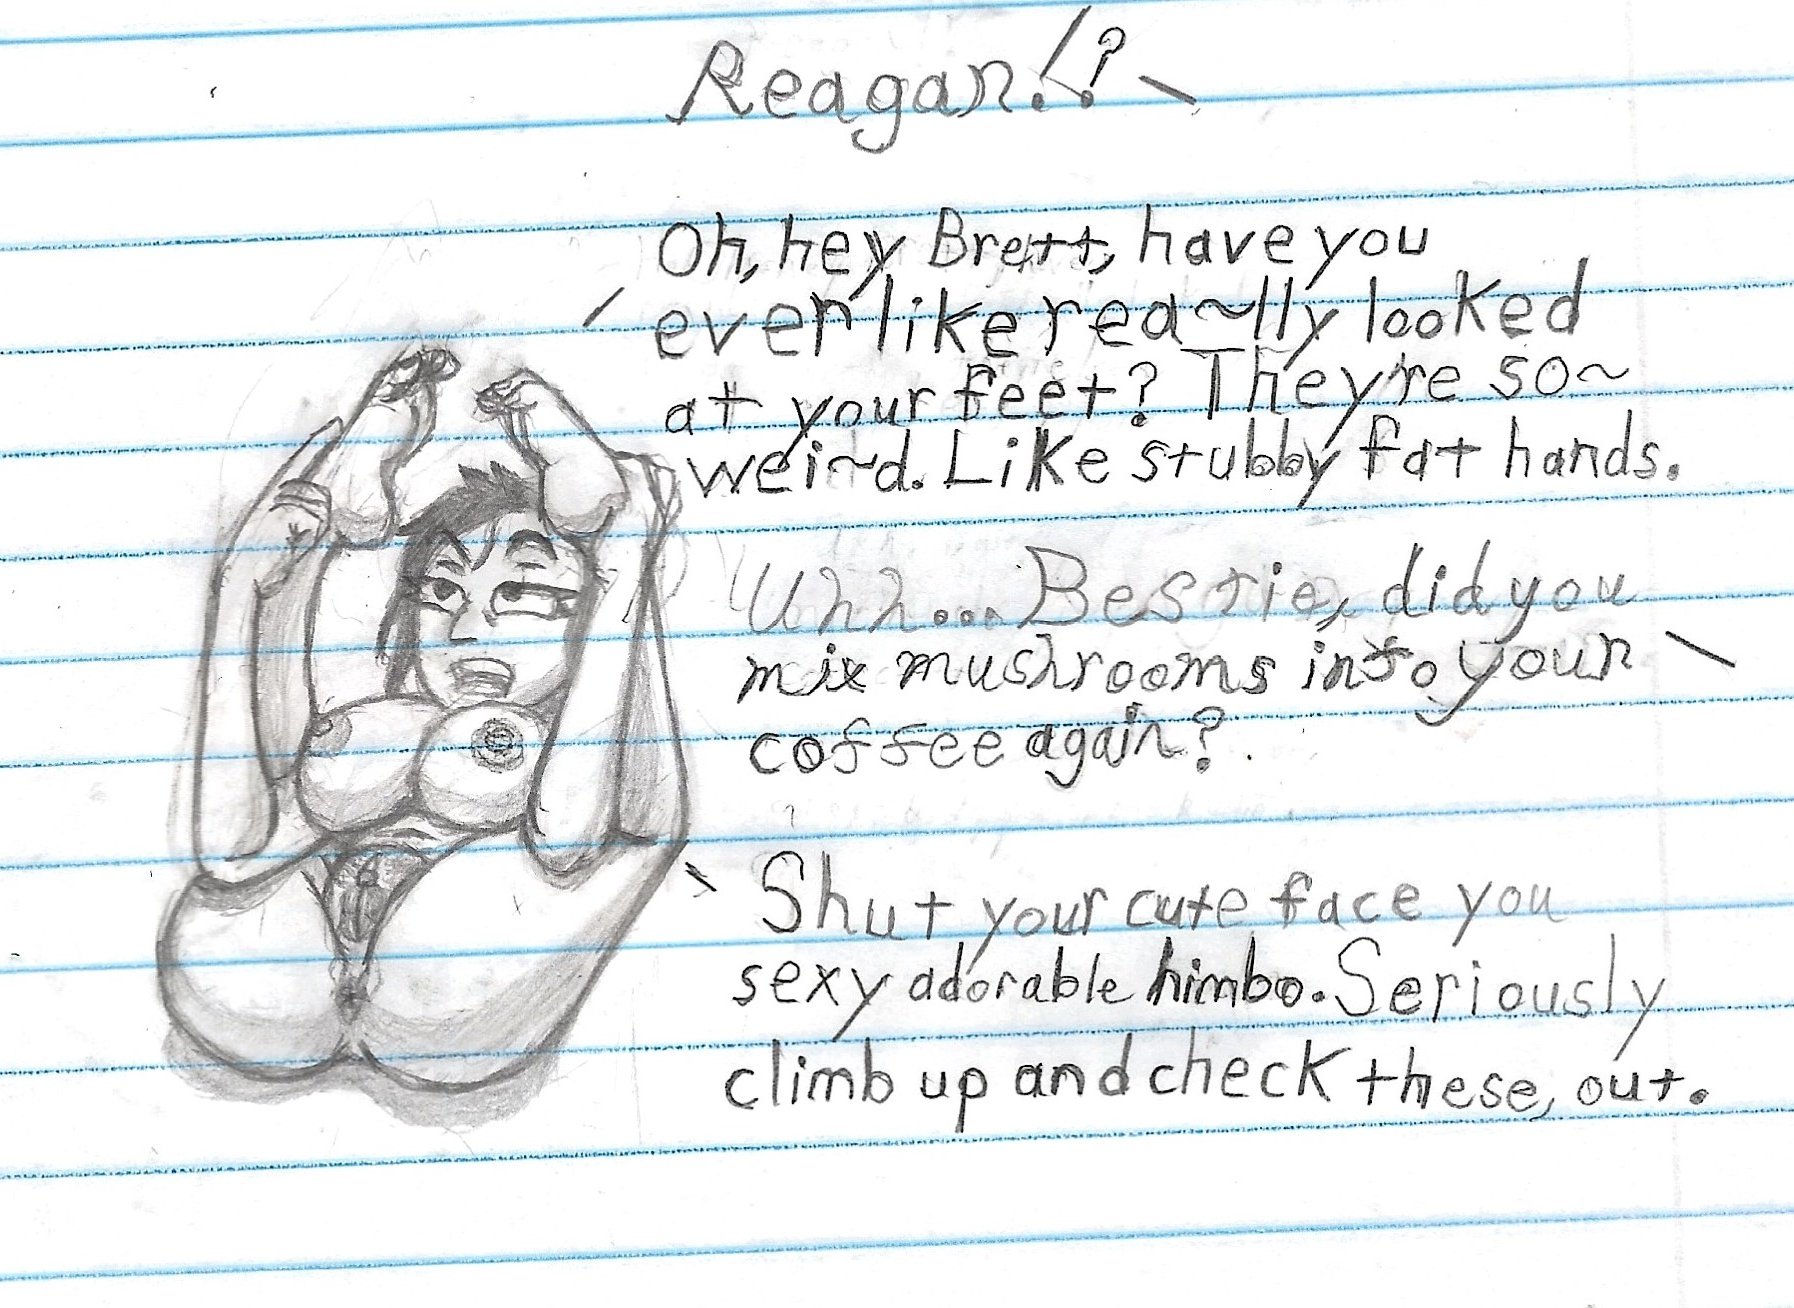 Reagan!?
Oh, hey Brett, have you
ever like rea~lly looked
at your feet? They're so~
wei~rd. Like stubby fat hands.
Uhh... Bestie, did you
mix mushrooms into your
coffee again?
Shut your cute face you
sexy adorable himbo. Seriously
climb up and check these, out.